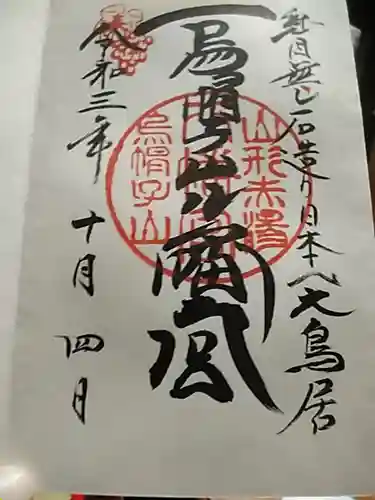 継目無し石造り日本一大鳥居
烏帽子山八幡宮
山形赤湯
烏帽子山
令和三年 十月 四日